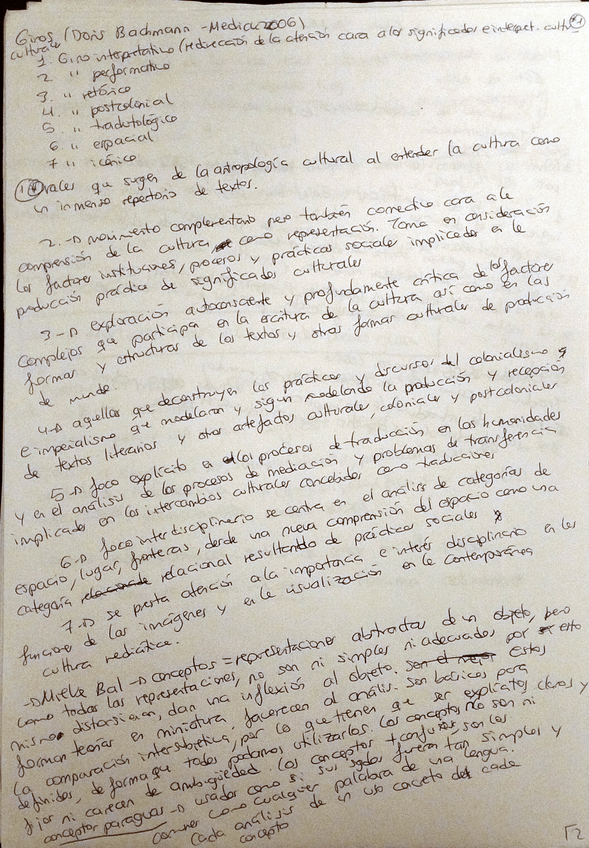 Giros (Doris Bachmann-Medick 2006)
culturales
1. Giro interpretativo (reducción de la atención cara a los significados e interpret. cult
2 " performativo
3. " retórico
4. " postcolonial
5. " tradutológico
6 " espacial
7 " icónico
que surgen de la antropología cultural al entender la cultura como
un inmenso repertorio de textos.
2. → movimiento complementario pero también correctivo cara a la
comprensión de la cultura como representación. Toma en consideración
los factores institucionales, procesos y prácticas sociales implicados en la
producción práctica de significados culturales
3 → exploración autoconsciente y profundamente crítica de los factores
complejos que participan en la escritura de la cultura así como en las
formas y estructuras de los textos y otras formas culturales de producción
de mundo.
4 → aquellos que deconstruyen las prácticas y discursos del colonialismo
e imperialismo que modelaron y siguen modelando la producción y recepción
de textos literarios y otros artefactos culturales, coloniales y postcoloniales
5 → foco explícito en los procesos de traducción en las humanidades
y en el análisis de los procesos de mediación y problemas de transferencia
implicados en los intercambios culturales concebidos como traducciones
6 → foco interdisciplinario se centra en el análisis de categorías de
espacio, lugar, fronteras, desde una nueva comprensión del espacio como una
categoría relacional resultando de prácticas sociales
7 → se presta atención a la importancia e interés disciplinario en las
funciones de las imágenes y en la visualización en la contemporánea
cultura mediática.
→ Mieke Bal → conceptos = representaciones abstractas de un objeto, pero
como todas las representaciones, no son ni simples ni adecuados por esto
mismo distorsionan, dan una inflexión al objeto. estos
forman teorías en miniatura, favorecen al análisis. Son básicos para
la comparación intersubjetiva, por lo que tienen que ser explícitos, claros y
definidos, de forma que todos podamos utilizarlos. Los conceptos no son ni
fijos ni carecen de ambigüedad. Los conceptos + confusos son los
conceptos paraguas → usados como si sus significados fueran tan simples y
comunes como cualquier palabra de una lengua.
Cada análisis de un uso concreto de cada
concepto